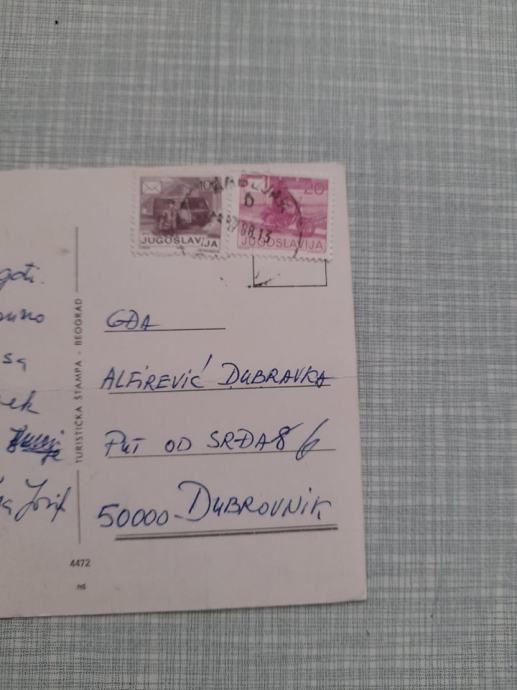 100
JUGOSLAVIJA
20
JUGOSLAVIJA
sa
Josif
TURISTIČKA ŠTAMPA - BEOGRAD
GĐA
ALFIREVIĆ DUBRAVKA
PUT OD SRĐA 6
50000-DUBROVNIK
4472